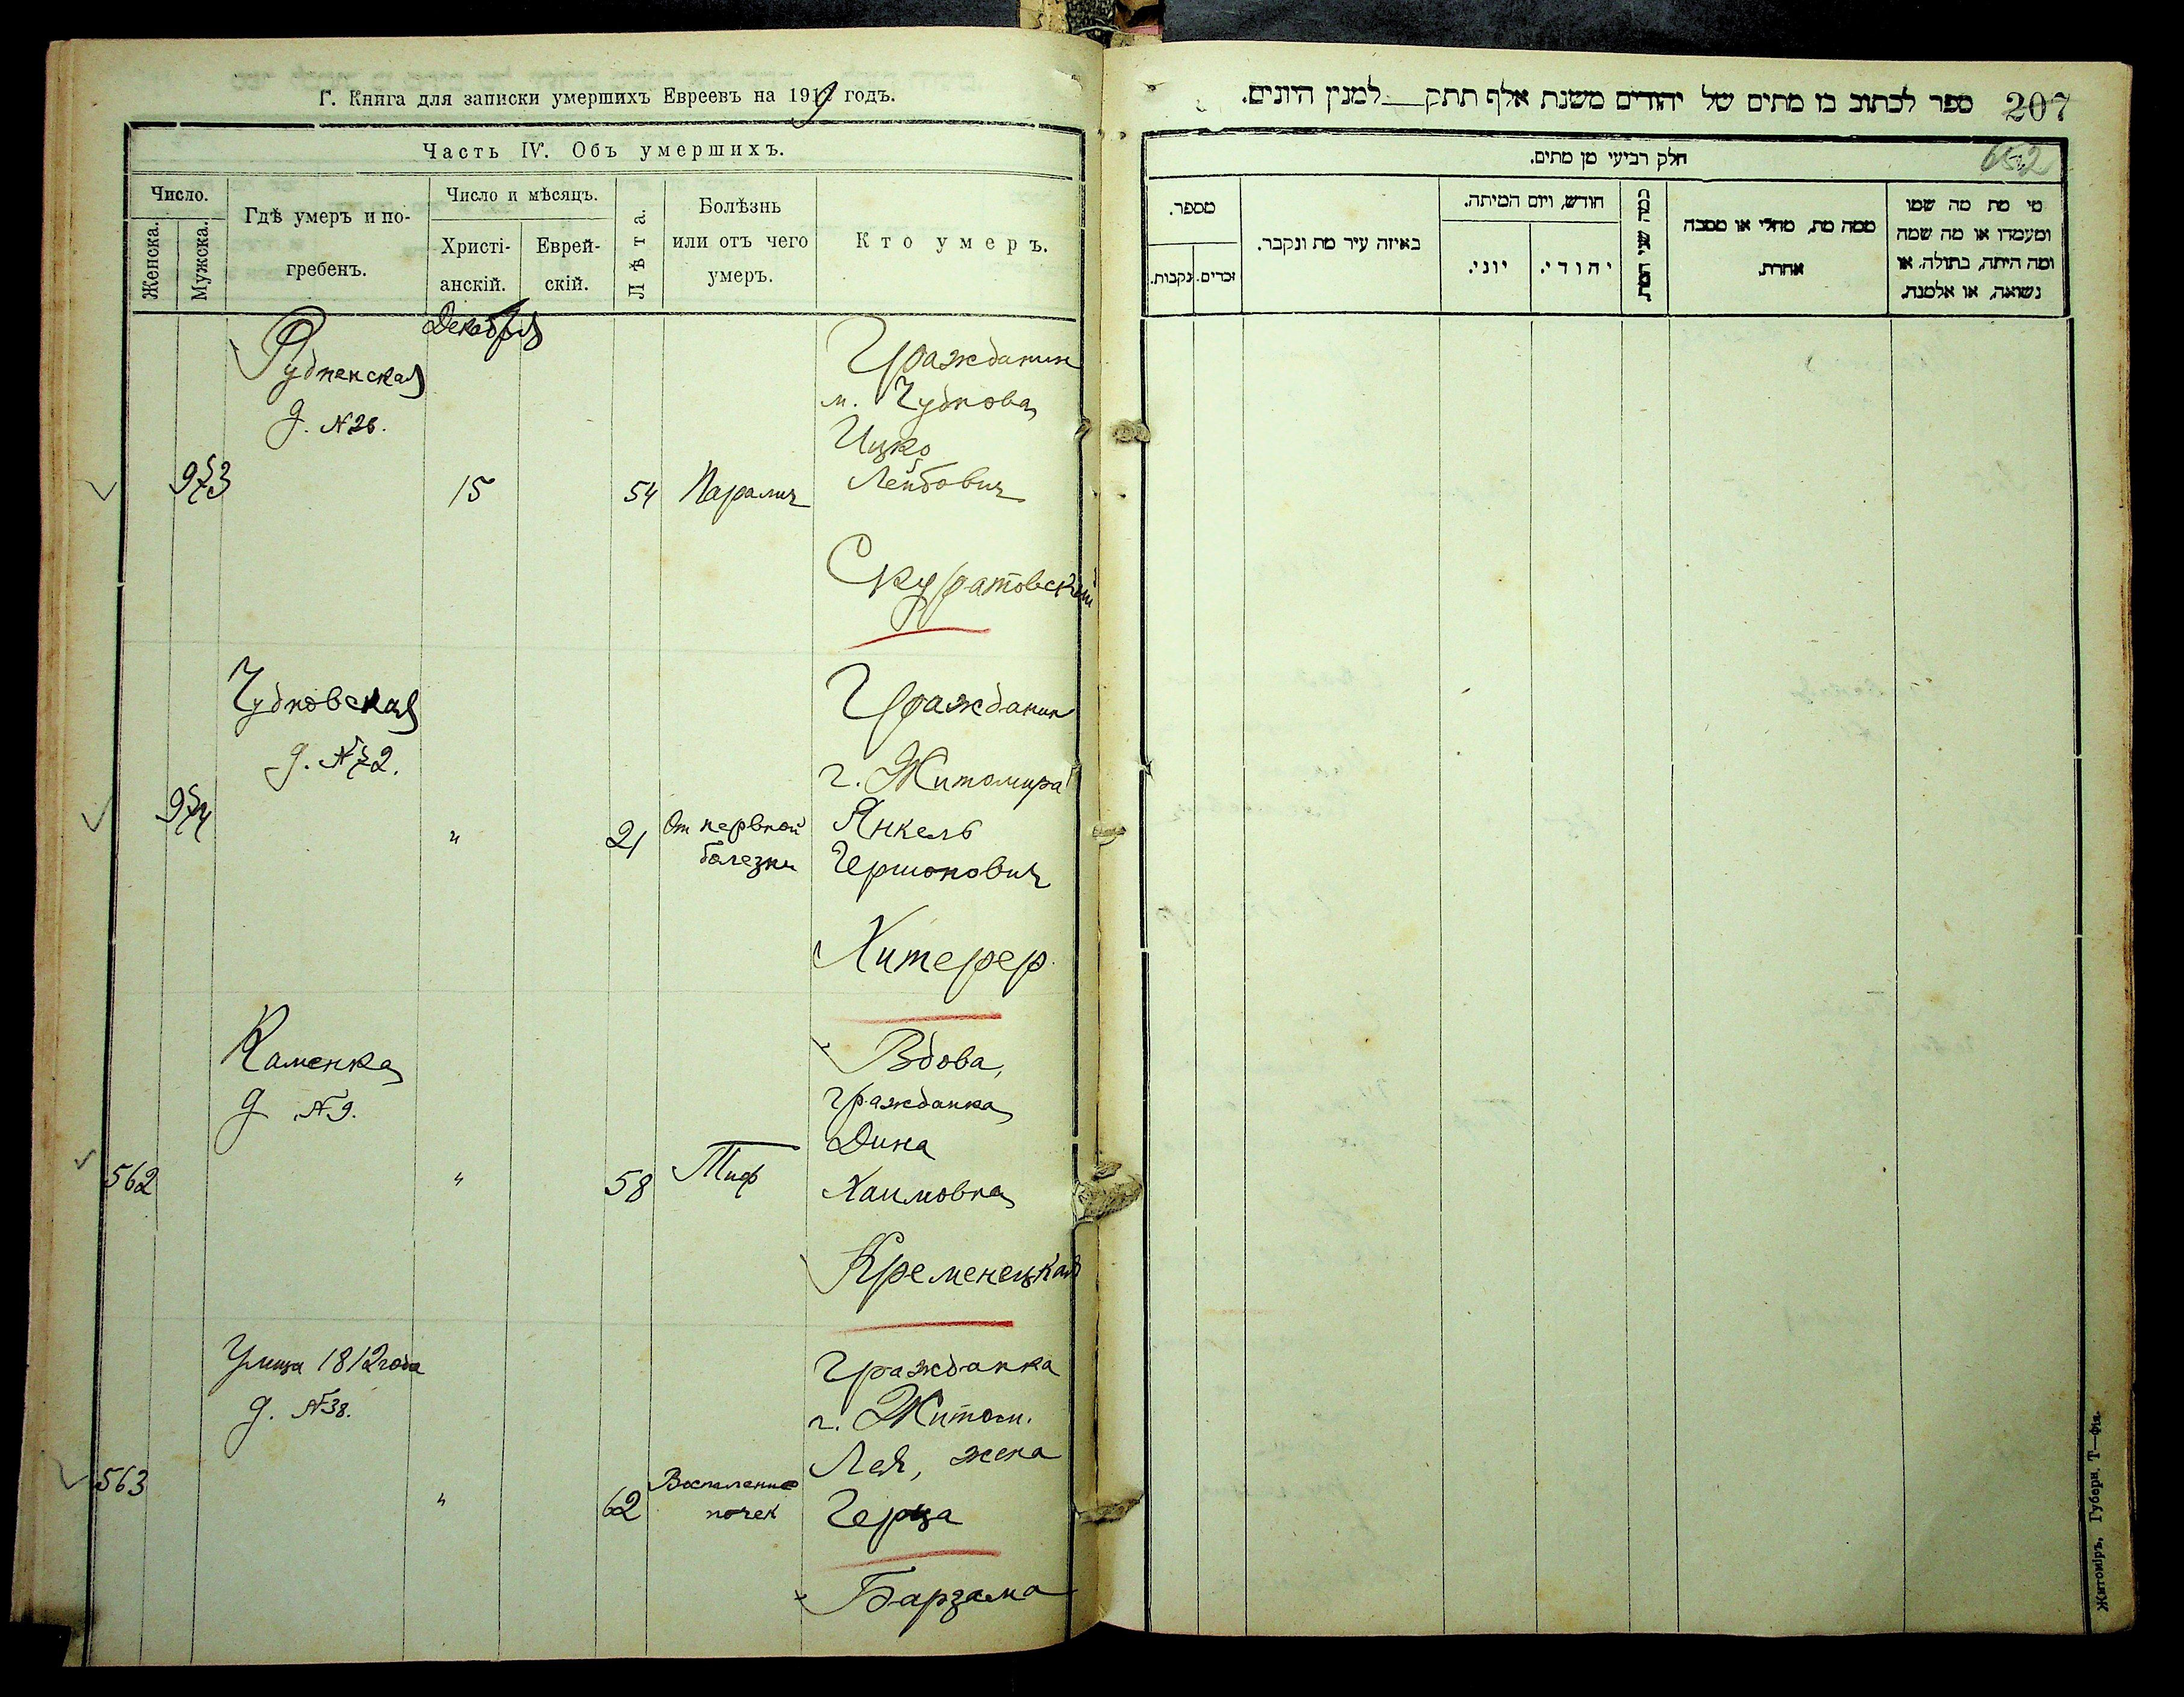 Г. Книга для записки умершихъ Евреевъ на 1919 годъ.
Часть IV. Объ умершихъ.
Число.
Женска.
Мужска.
Гдѣ умеръ и по-
гребенъ.
Число и мѣсяцъ.
Христі-
анскій.
Еврей-
скій.
Лѣта.
Болѣзнь
или отъ чего
умеръ.
Кто умеръ.
Декабря
Рудненская
д. №26.
973
15
54
Паралич
Гражданин
м. Чуднова
Ицко
Лейбович
Скуратовский
Чудновская
д. №72.
974
"
21
От нервной
болезни
Гражданин
г. Житомира
Янкель
Гершонович
Хитерер
Каменка
д №9.
562
"
58
Тиф
Вдова,
гражданка
Дина
Хаимовна
Кременецкая
Улица 1812 года
д. №38.
563
"
62
Воспаление
почек
Гражданка
г. Житом.
Лея, жена
Герца
Барзама
ספר לכתוב בו מתים של יהודים משנת אלף תתק__למנין היונים.
207
652
חלק רביעי מן מתים.
מי מת מה שמו
ומעמדו או מה שמה
ומה היתה, בתולה, או
נשואה, או אלמנה.
ממה מת, מחלי או מסבה
אחרת.
כמה שני המת.
חודש, ויום המיתה.
יהודי.
יוני.
באיזה עיר מת ונקבר.
מספר.
זכרים.
נקבות.
Житоміръ, Губерн. Т—фія.